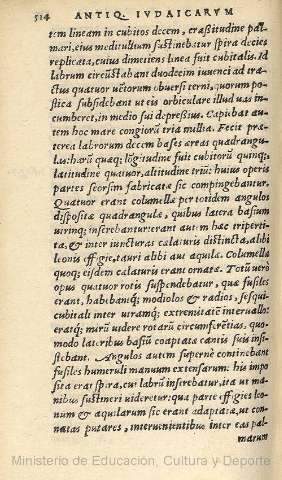 514 ANTIQ. IVDAICARVM
tem lineam in cubitos decem, craßitudine pal-
mari, eius meditullium sustinebatur spira decies
replicata, cuius dimetiens linea fuit cubitalis. Id
labrum circūstabant duodecim iuuenci ad tra-
ctus quatuor uētorum obuersi terni, quorum po-
stica subsidebant ut eis orbiculare illud uas in-
cumberet, in medio sui depreßius. Capiebat au-
tem hoc mare congiorū tria millia. Fecit præ-
terea labrorum decem bases æreas quadrangu-
las: harū quæq; lōgitudine fuit cubitorū quinq;,
latitudine quatuor, altitudine triū: huius operis
partes seorsim fabricatæ sic compingebantur.
Quatuor erant columellæ per totidem angulos
dispositæ quadrangulæ, quibus latera basium
utrinq; inserebantur: erant autem hæc triperti-
ta, & inter iuncturas cælaturis distincta, alibi
leonis effigie, tauri alibi aut aquilæ. Columellæ
quoq; eisdem cælaturis erant ornatæ. Totū uerò
opus quatuor rotis suspendebatur, quæ fusiles
erant, habebantq; modiolos & radios, sesqui-
cubitali inter utramq; extremitatē interuallo:
eratq; mirū uidere rotarū circumferētias, quo-
modo lateribus basiū coaptatæ cantis suis insi-
stebant. Angulos autem supernè continebant
fusiles humeruli manuum extensarum: his impo
sita erat spira, cui labrū inserebatur, ita ut ma-
nibus sustineri uideretur: quæ parte effigies leo-
num & aquilarum sic erant adaptatæ, ut con-
natas putares, interuenientibus inter eas pal-
marum
Ministerio de Educación, Cultura y Deporte